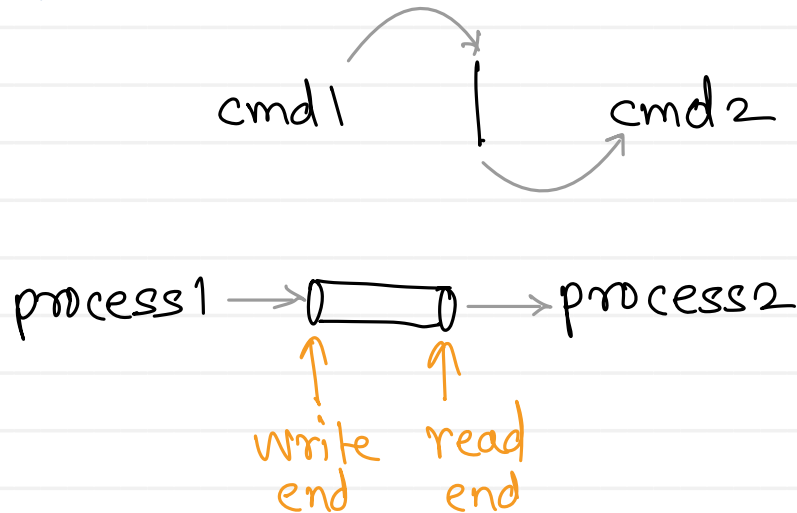 cmd1 | cmd2
process1 process2
write read
end end